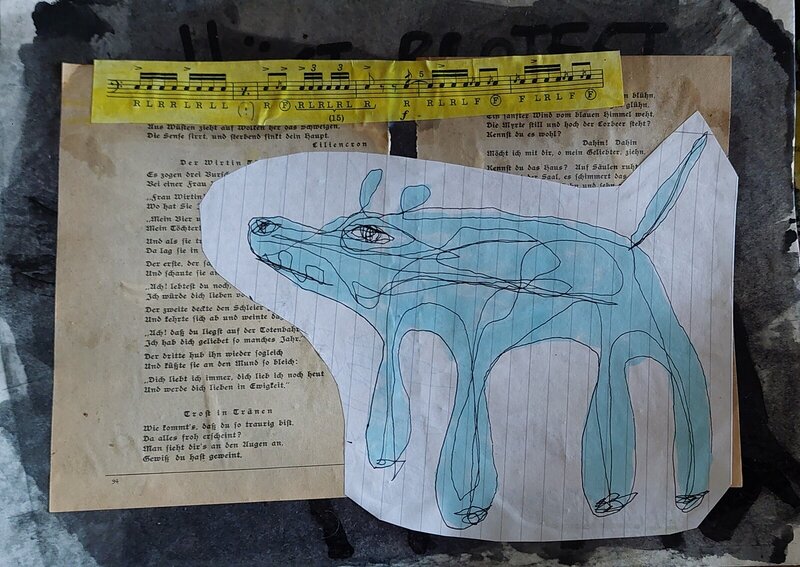 3 3 5
R L R R L R L L R F R L R L R L R R R L R L F F F L R L F F
(15) f
Aus Wüsten zieht auf Wolken her das Schweigen,
Die Sense sirrt, und sterbend sinkt dein Haupt.
Liliencron
Der Wirtin
Es zogen drei
Bei einer Frau
„Frau Wirtin
Wo hat Sie
„Mein Bier u
Mein Töchterl
Und als sie tr
Da lag sie in
Der erste, der
Und schaute sie
„Ach! lebtest du noch,
Ich würde dich lieben vo
Der zweite deckte den Schleier
Und kehrte sich ab und weinte da
„Ach! daß du liegst auf der Totenbahr
Ich hab dich geliebet so manches Jahr.
Der dritte hub ihn wieder sogleich
Und küßte sie an den Mund so bleich:
„Dich liebt ich immer, dich lieb ich noch heut
Und werde dich lieben in Ewigkeit.“
Trost in Tränen
Wie kommt's, daß du so traurig bist,
Da alles froh erscheint?
Man sieht dir's an den Augen an,
Gewiß du hast geweint.
94
blühn,
glühn,
Ein sanfter Wind vom blauen Himmel weht,
Die Myrte still und hoch der Lorbeer steht?
Kennst du es wohl?
Dahin! Dahin
Möcht ich mit dir, o mein Geliebter, ziehn.
Kennst du das Haus? Auf Säulen ruht
der Saal, es schimmert das